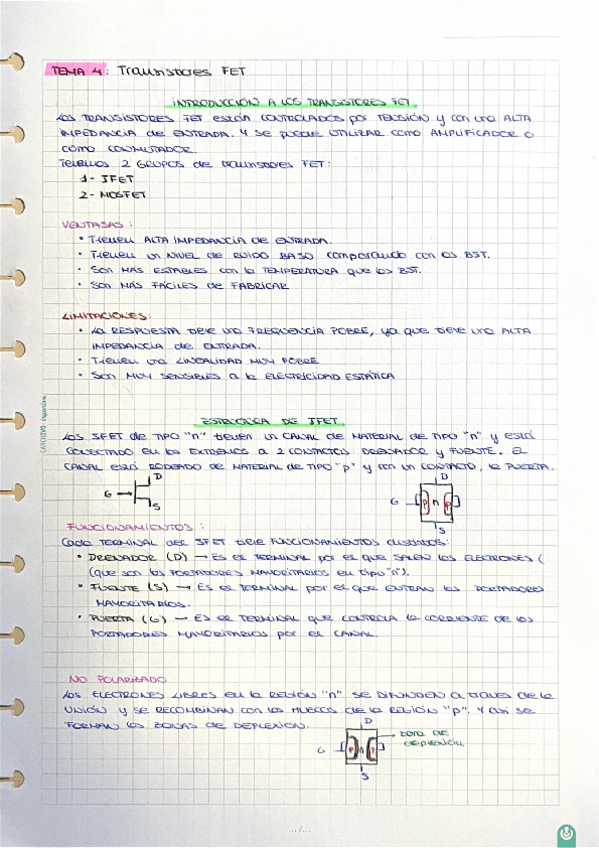 TEMA 4: Transistores FET
INTRODUCCIÓN A LOS TRANSISTORES FET
LOS TRANSISTORES FET están CONTROLADOS por TENSIÓN y con una ALTA
IMPEDANCIA de ENTRADA. Y se puede UTILIZAR como AMPLIFICADOR O
COMO CONMUTADOR.
Tenemos 2 GRUPOS de transistores FET:
1- JFET
2- MOSFET
VENTAJAS:
• Tienen ALTA IMPEDANCIA DE ENTRADA.
• Tienen un NIVEL de RUIDO BAJO comparando con los BJT.
• Son MÁS ESTABLES con la TEMPERATURA que los BJT.
• Son MÁS FÁCILES de FABRICAR
LIMITACIONES:
• La RESPUESTA tiene una FREQUENCIA POBRE, ya que tiene una ALTA
IMPEDANCIA de ENTRADA.
• Tienen una LINEALIDAD MUY POBRE
• Son MUY SENSIBLES a la ELECTRICIDAD ESTÁTICA
ESTRUCTURA DE JFET
Los JFET de TIPO "n" tienen un CANAL de MATERIAL de TIPO "n" y está
CONECTADO en los EXTREMOS a 2 CONTACTOS DRENADOR y FUENTE. El
CANAL está RODEADO de MATERIAL de TIPO "p" y con un CONTACTO, la PUERTA.
D
G
S
D
G
p n p
S
FUNCIONAMIENTOS:
Cada TERMINAL del JFET tiene FUNCIONAMIENTOS distintos:
• DRENADOR (D) → Es el TERMINAL por el que SALEN los ELECTRONES (
(que son los PORTADORES MAYORITARIOS en tipo "n").
• FUENTE (S) → Es el TERMINAL por el que ENTRAN los PORTADORES
MAYORITARIOS.
• PUERTA (G) → Es el TERMINAL que CONTROLA la CORRIENTE de los
PORTADORES MAYORITARIOS por el CANAL.
NO POLARIZADO
Los ELECTRONES LIBRES en la REGIÓN "n" se DIFUNDEN a través de la
UNIÓN y se RECOMBINAN con los HUECOS de la REGIÓN "p". Y así se
FORMAN las ZONAS DE DEPLEXIÓN.
D
zona de
DEPLEXIÓN
G
p n p
S
.../...